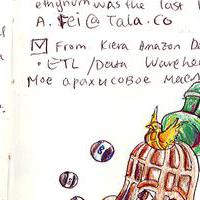 ethynum was the last
A. Fei@Tala.co
☑ From Kiera Amazon Da
• ETL/Data Wareho
Мое арахисовое масл